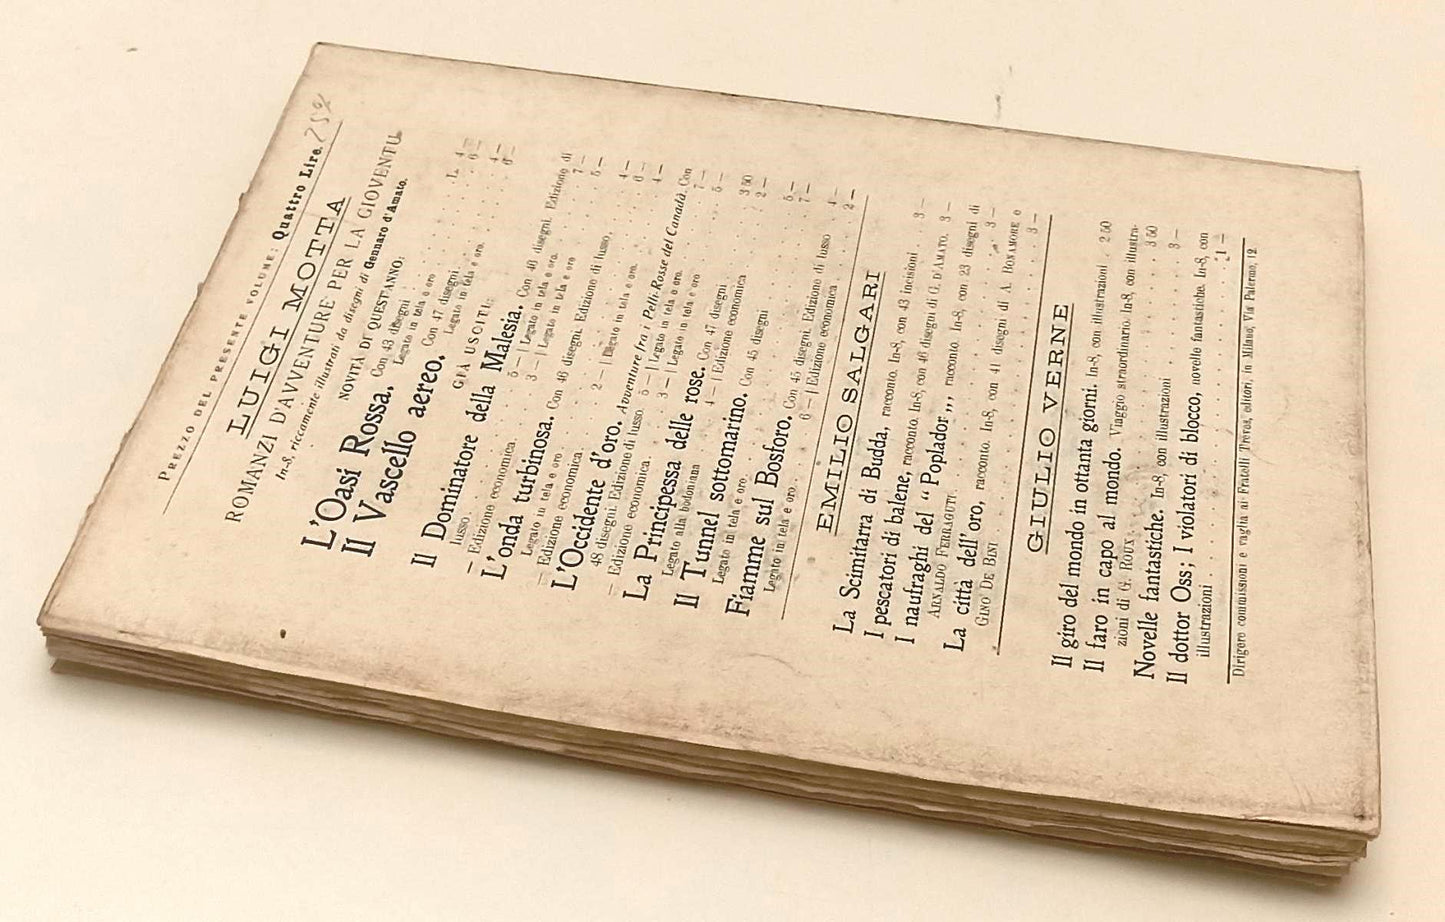 PREZZO DEL PRESENTE VOLUME: Quattro Lire.
LUIGI MOTTA
ROMANZI D'AVVENTURE PER LA GIOVENTÙ
In-8, riccamente illustrati da disegni di Gennaro d'Amato.
NOVITÀ DI QUEST'ANNO:
L'Oasi Rossa. Con 43 disegni . . . L. 4 —
Legato in tela e oro . . . 6 —
Il Vascello aereo. Con 47 disegni . . . 4 —
Legato in tela e oro . . . 6 —
GIÀ USCITI:
Il Dominatore della Malesia. Con 40 disegni. Edizione di
lusso . . . 5 — | Legato in tela e oro . . . 7 —
— Edizione economica . . . 3 — | Legato in tela e oro . . . 5 —
L'onda turbinosa. Con 46 disegni. Edizione di lusso. 4 —
Legato in tela e oro . . . 6 —
— Edizione economica . . . 2 — | Legato in tela e oro . . . 4 —
L'Occidente d'oro. Avventure fra i Pelli-Rosse del Canadà. Con
48 disegni. Edizione di lusso. 5 — | Legato in tela e oro. 7 —
— Edizione economica . . . 3 — | Legato in tela e oro . . . 5 —
La Principessa delle rose. Con 47 disegni . . . 3 50
Legato alla bodoniana . . . 4 — | Edizione economica . . . 2 —
Il Tunnel sottomarino. Con 45 disegni . . . 5 —
Legato in tela e oro . . . 7 —
Fiamme sul Bosforo. Con 45 disegni. Edizione di lusso 4 —
Legato in tela e oro . . . 6 — | Edizione economica . . . 2 —
EMILIO SALGARI
La Scimitarra di Budda, racconto. In-8, con 43 incisioni 3 —
I pescatori di balene, racconto. In-8, con 46 disegni di G. D'AMATO. 3 —
I naufraghi del "Poplador", racconto. In-8, con 23 disegni di
ARNALDO FERRAGUTI . . . 3 —
La città dell'oro, racconto. In-8, con 41 disegni di A. BONAMORE e
GINO DE BINI . . . 3 —
GIULIO VERNE
Il giro del mondo in ottanta giorni. In-8, con illustrazioni . 2 50
Il faro in capo al mondo. Viaggio straordinario. In-8, con illustra-
zioni di G. ROUX . . . 3 50
Novelle fantastiche. In-8, con illustrazioni . . . 3 —
Il dottor Oss; I violatori di blocco, novelle fantastiche. In-8, con
illustrazioni . . . 1 —
Dirigere commissioni e vaglia ai Fratelli Treves, editori, in Milano, Via Palermo, 12.